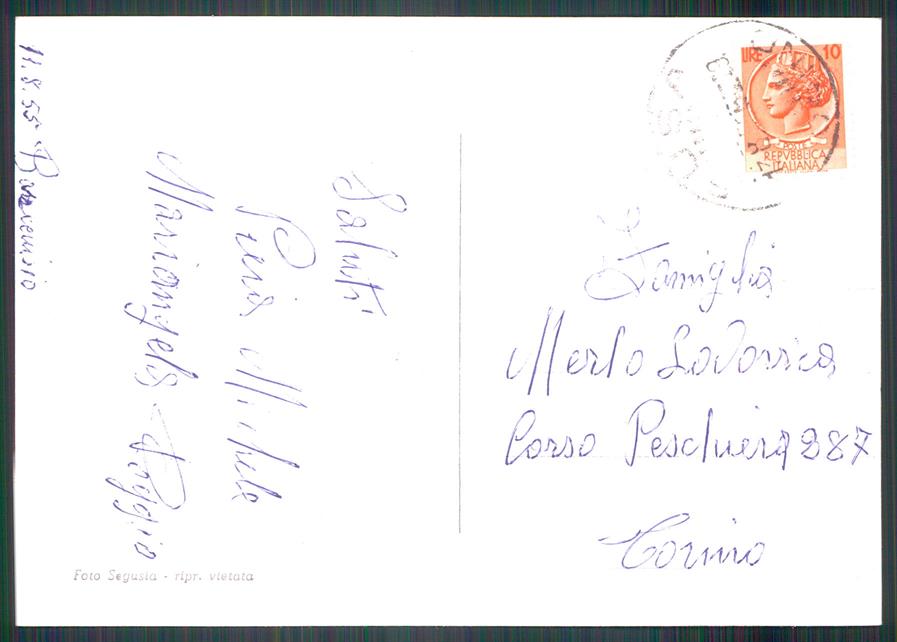 11.8.55
Saluti
Piera Michele
Mariangela Poggio
Foto Segusia - ripr. vietata
LIRE 10
POSTE
REPVBBLICA
ITALIANA
Famiglia
Merlo Lodovica
Corso Peschiera 287
Torino